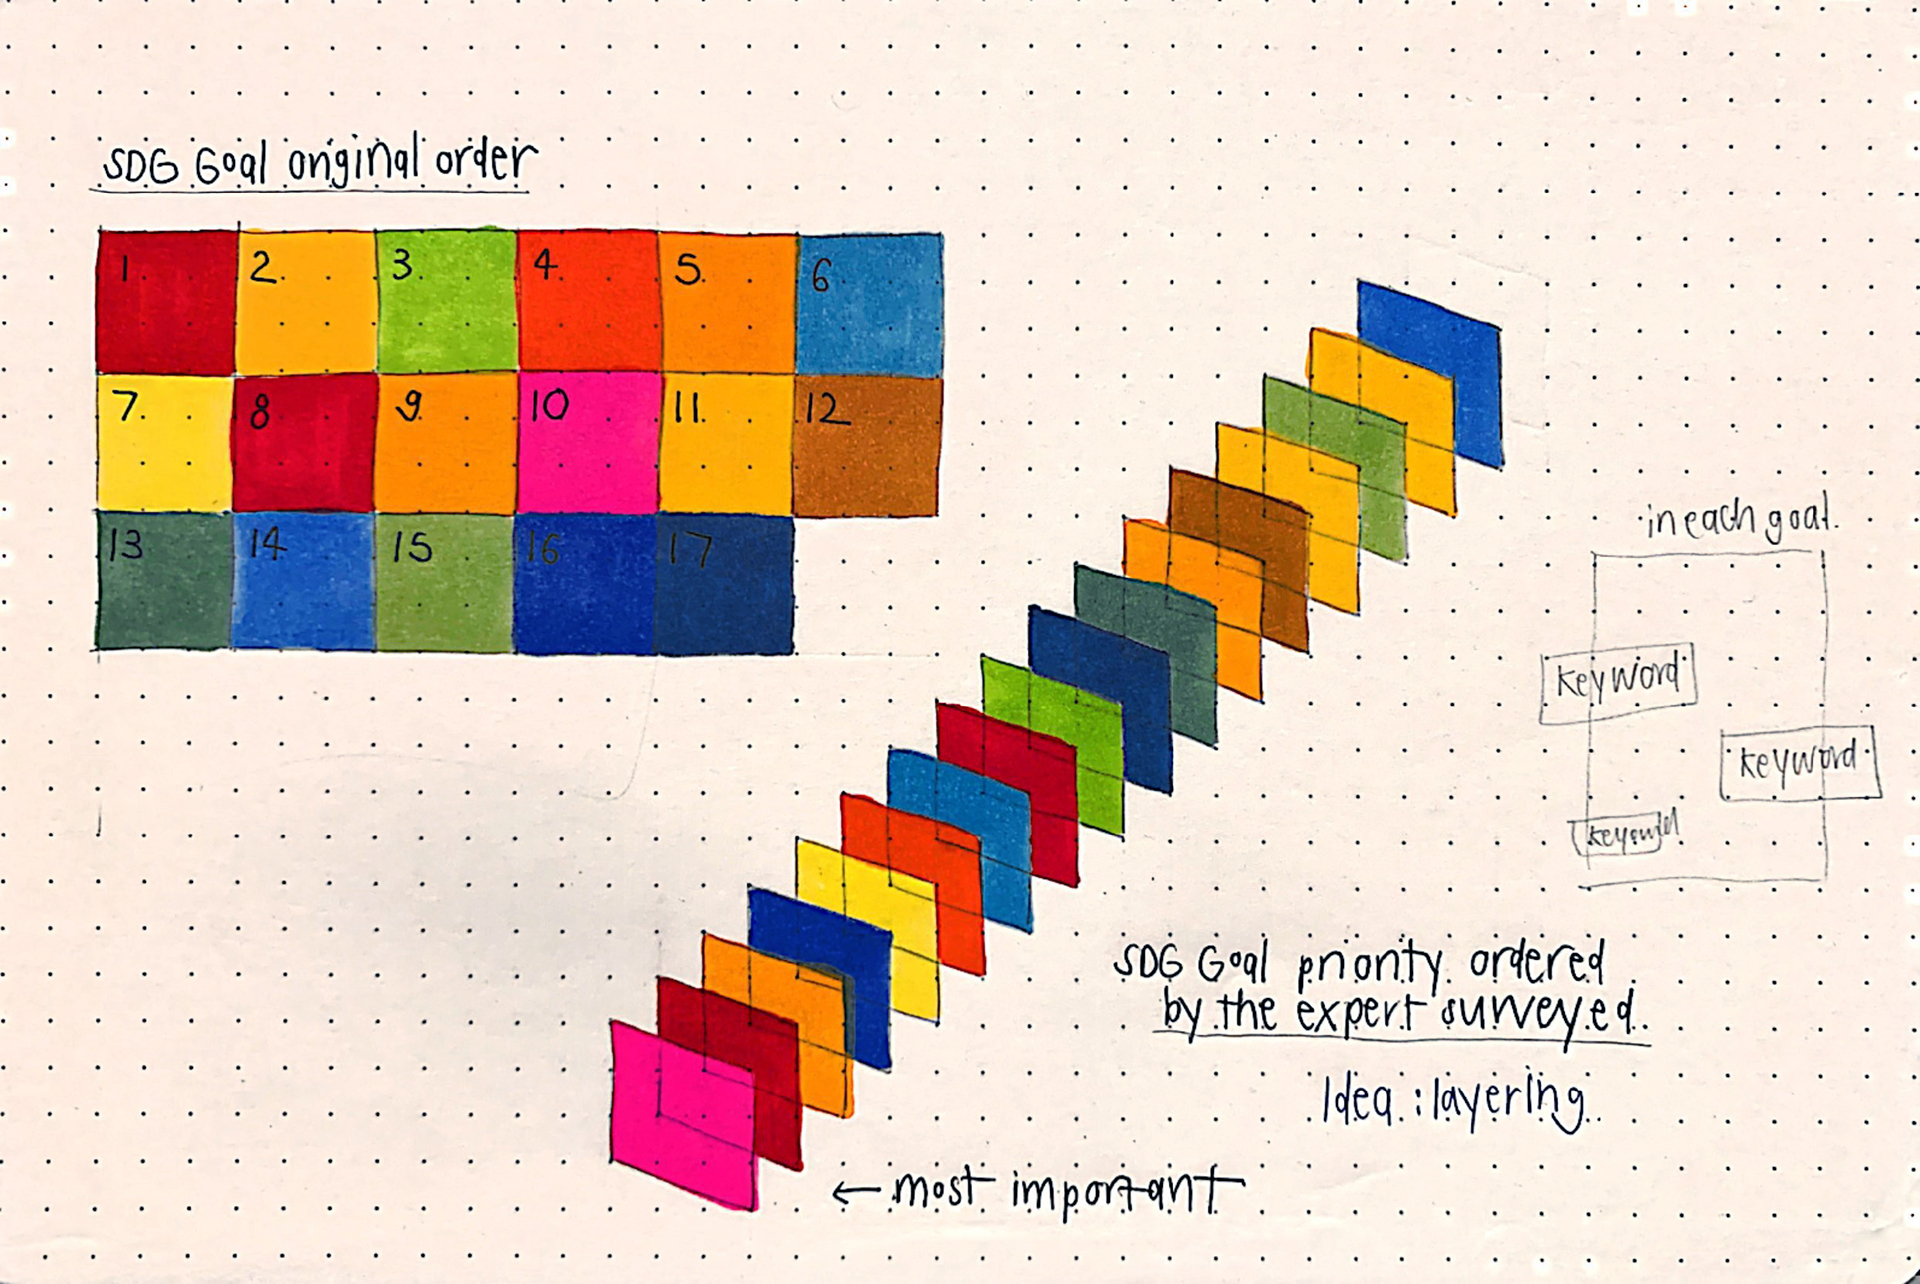 SDG Goal original order
1 2 3 4 5 6
7 8 9 10 11 12
13 14 15 16 17
in each goal.
keyword
keyword
keyword
SDG Goal priority ordered
by the expert surveyed.
Idea : layering
← most important